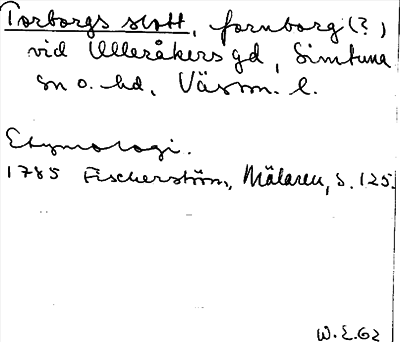 Torborgs slott, fornborg (?)
vid Ulleråkers gd, Simtuna
sn o. hd, Väsm. l.
Etymologi.
1785 Fischerström, Mälaren, s. 125.
W.E.62